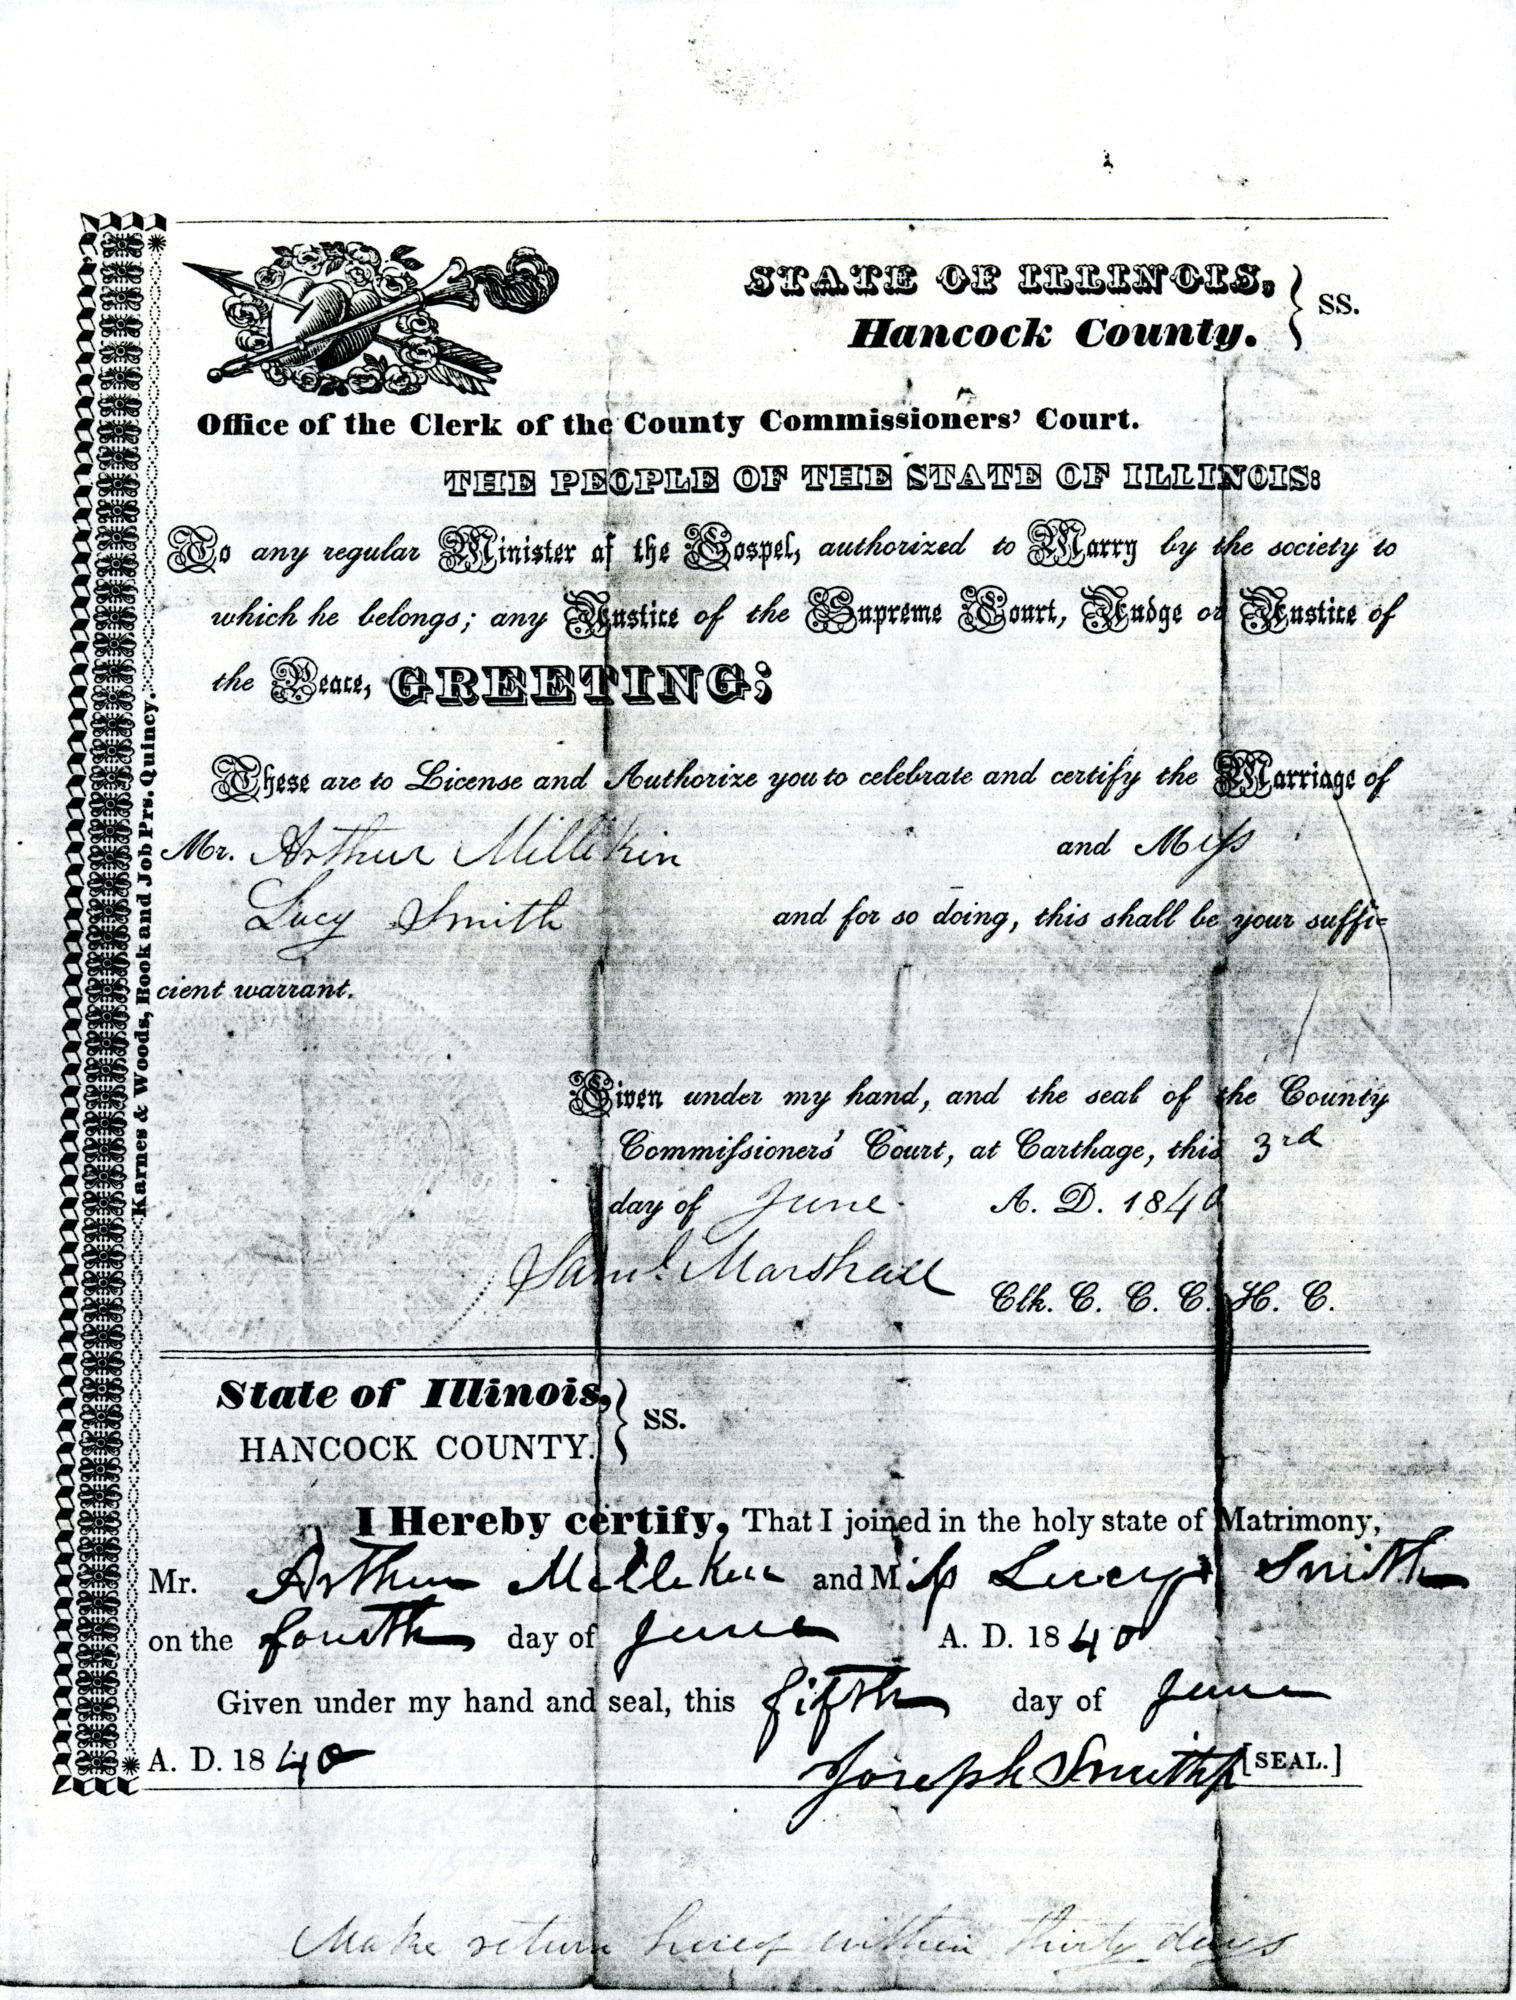 STATE OF ILLINOIS, } SS.
Hancock County.
Office of the Clerk of the County Commissioners' Court.
THE PEOPLE OF THE STATE OF ILLINOIS:
To any regular Minister of the Gospel, authorized to Marry by the society to
which he belongs; any Justice of the Supreme Court, Judge or Justice of
the Peace, GREETING;
These are to License and Authorize you to celebrate and certify the Marriage of
Mr. Arthur Millikin and Miss
Lucy Smith and for so doing, this shall be your suffi-
cient warrant.
Given under my hand, and the seal of the County
Commissioners' Court, at Carthage, this 3rd
day of June A. D. 1840
Saml. Marshall Clk. C. C. C. H. C.
Karnes & Woods, Book and Job Prs. Quincy.
State of Illinois, } SS.
HANCOCK COUNTY.
I Hereby certify, That I joined in the holy state of Matrimony,
Mr. Arthur Milleken and Miss Lucy Smith
on the fourth day of June A. D. 1840
Given under my hand and seal, this fifth day of June
A. D. 1840 Joseph Smith [SEAL.]
Make return hereof within thirty days